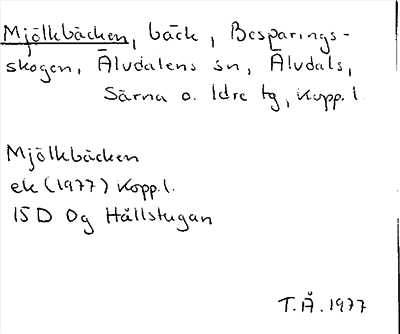 Mjölkbäcken, bäck, Besparings-
skogen, Älvdalens sn, Älvdals,
Särna o. Idre tg, Kopp. l.
Mjölkbäcken
ek (1977) Kopp. l.
15 D 0g Hållstugan
T.Å. 1977